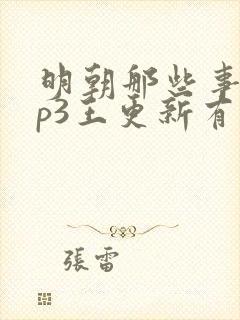 明朝那些事
p3王更新有
張雷